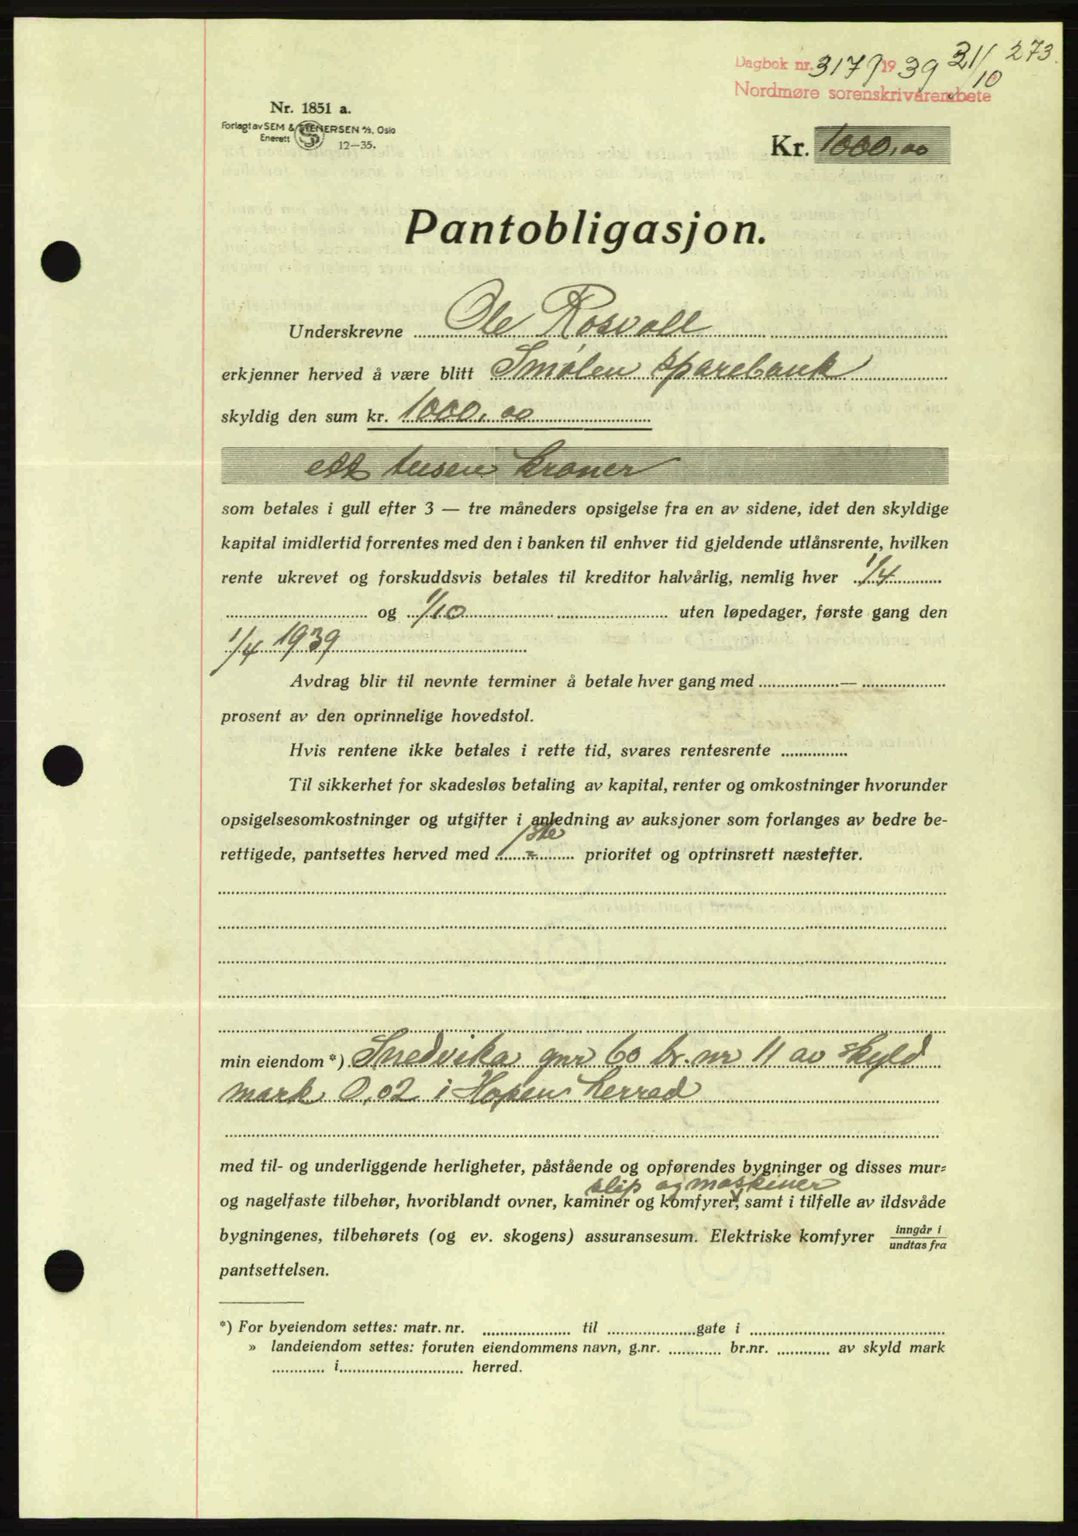 Dagbok nr. 3177 1939 31/10 273.
Nordmøre sorenskriverembete
Nr. 1851 a.
Forlagt av SEM & STENERSEN A/S, Oslo
Enerett
12-35.
Kr. 1000,00
Pantobligasjon.
Underskrevne Ole Rosvoll
erkjenner herved å være blitt Smølen sparebank
skyldig den sum kr. 1000,00
ett tusen kroner
som betales i gull efter 3 — tre måneders opsigelse fra en av sidene, idet den skyldige
kapital imidlertid forrentes med den i banken til enhver tid gjeldende utlånsrente, hvilken
rente ukrevet og forskuddsvis betales til kreditor halvårlig, nemlig hver 1/4
og 1/10 uten løpedager, første gang den
1/4 1939
Avdrag blir til nevnte terminer å betale hver gang med —
prosent av den oprinnelige hovedstol.
Hvis rentene ikke betales i rette tid, svares rentesrente
Til sikkerhet for skadesløs betaling av kapital, renter og omkostninger hvorunder
opsigelsesomkostninger og utgifter i anledning av auksjoner som forlanges av bedre be-
rettigede, pantsettes herved med 1ste prioritet og optrinsrett næstefter.
min eiendom *) Snedvika gnr 60 br. nr 11 av skyld
mark 0,02 i Hopen herred
med til- og underliggende herligheter, påstående og opførendes bygninger og disses mur-
slip og maskiner
og nagelfaste tilbehør, hvoriblandt ovner, kaminer og komfyrer, samt i tilfelle av ildsvåde
bygningenes, tilbehørets (og ev. skogens) assuransesum. Elektriske komfyrer inngår i
undtas fra
pantsettelsen.
*) For byeiendom settes: matr. nr. til gate i
» landeiendom settes: foruten eiendommens navn, g.nr. br.nr. av skyld mark
i herred.